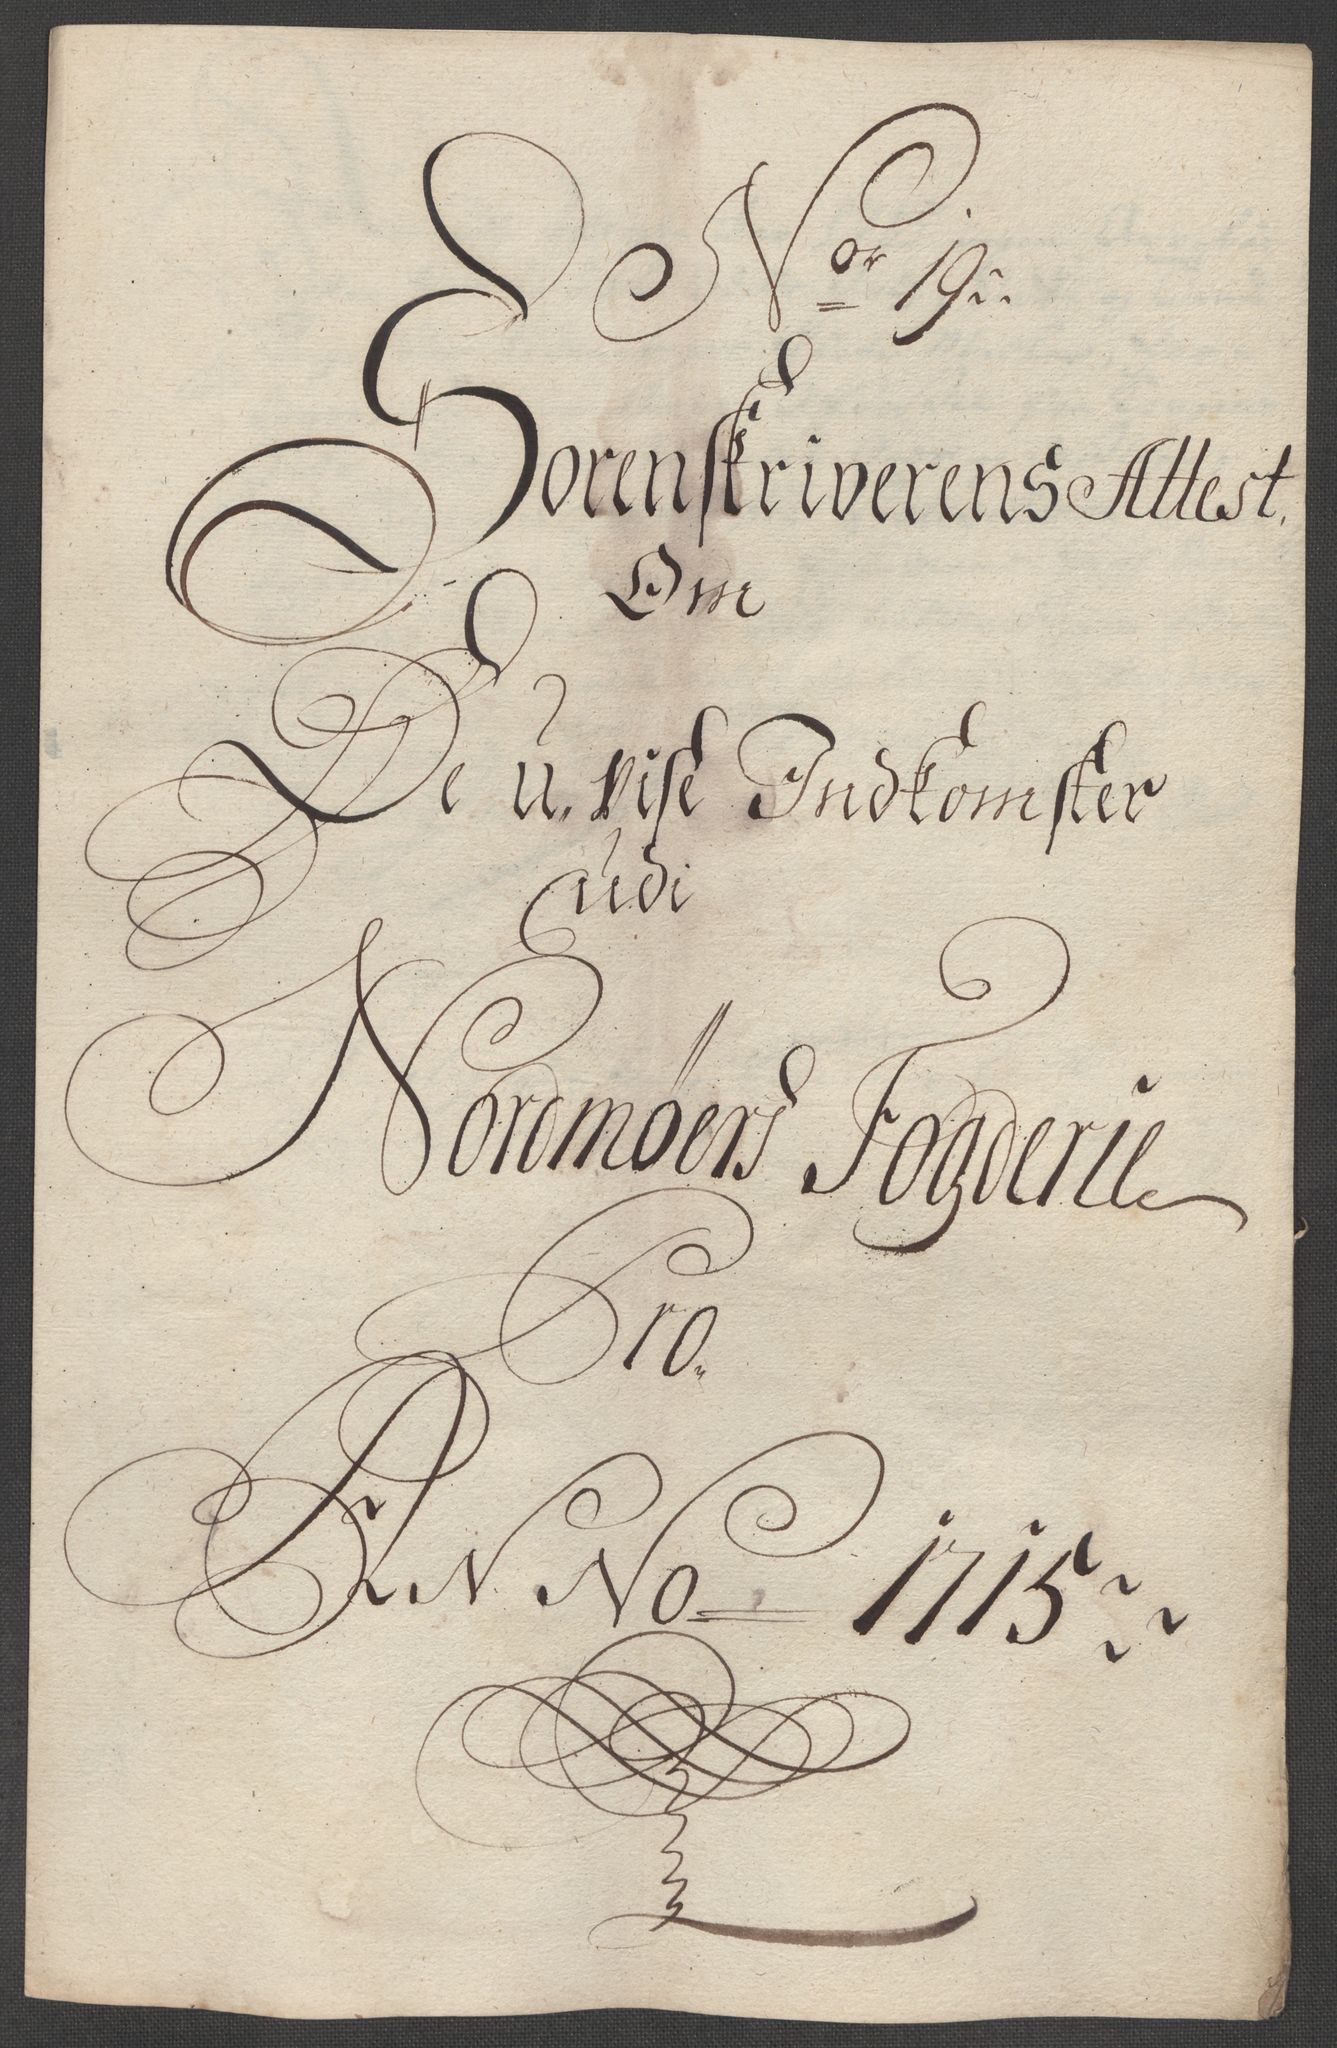 No͞r 19..
Sorenskriverens Attest.
Om
De u-vise Indkomster
udi
Nordmøers Fogderie
Pro.
ANNo 1715